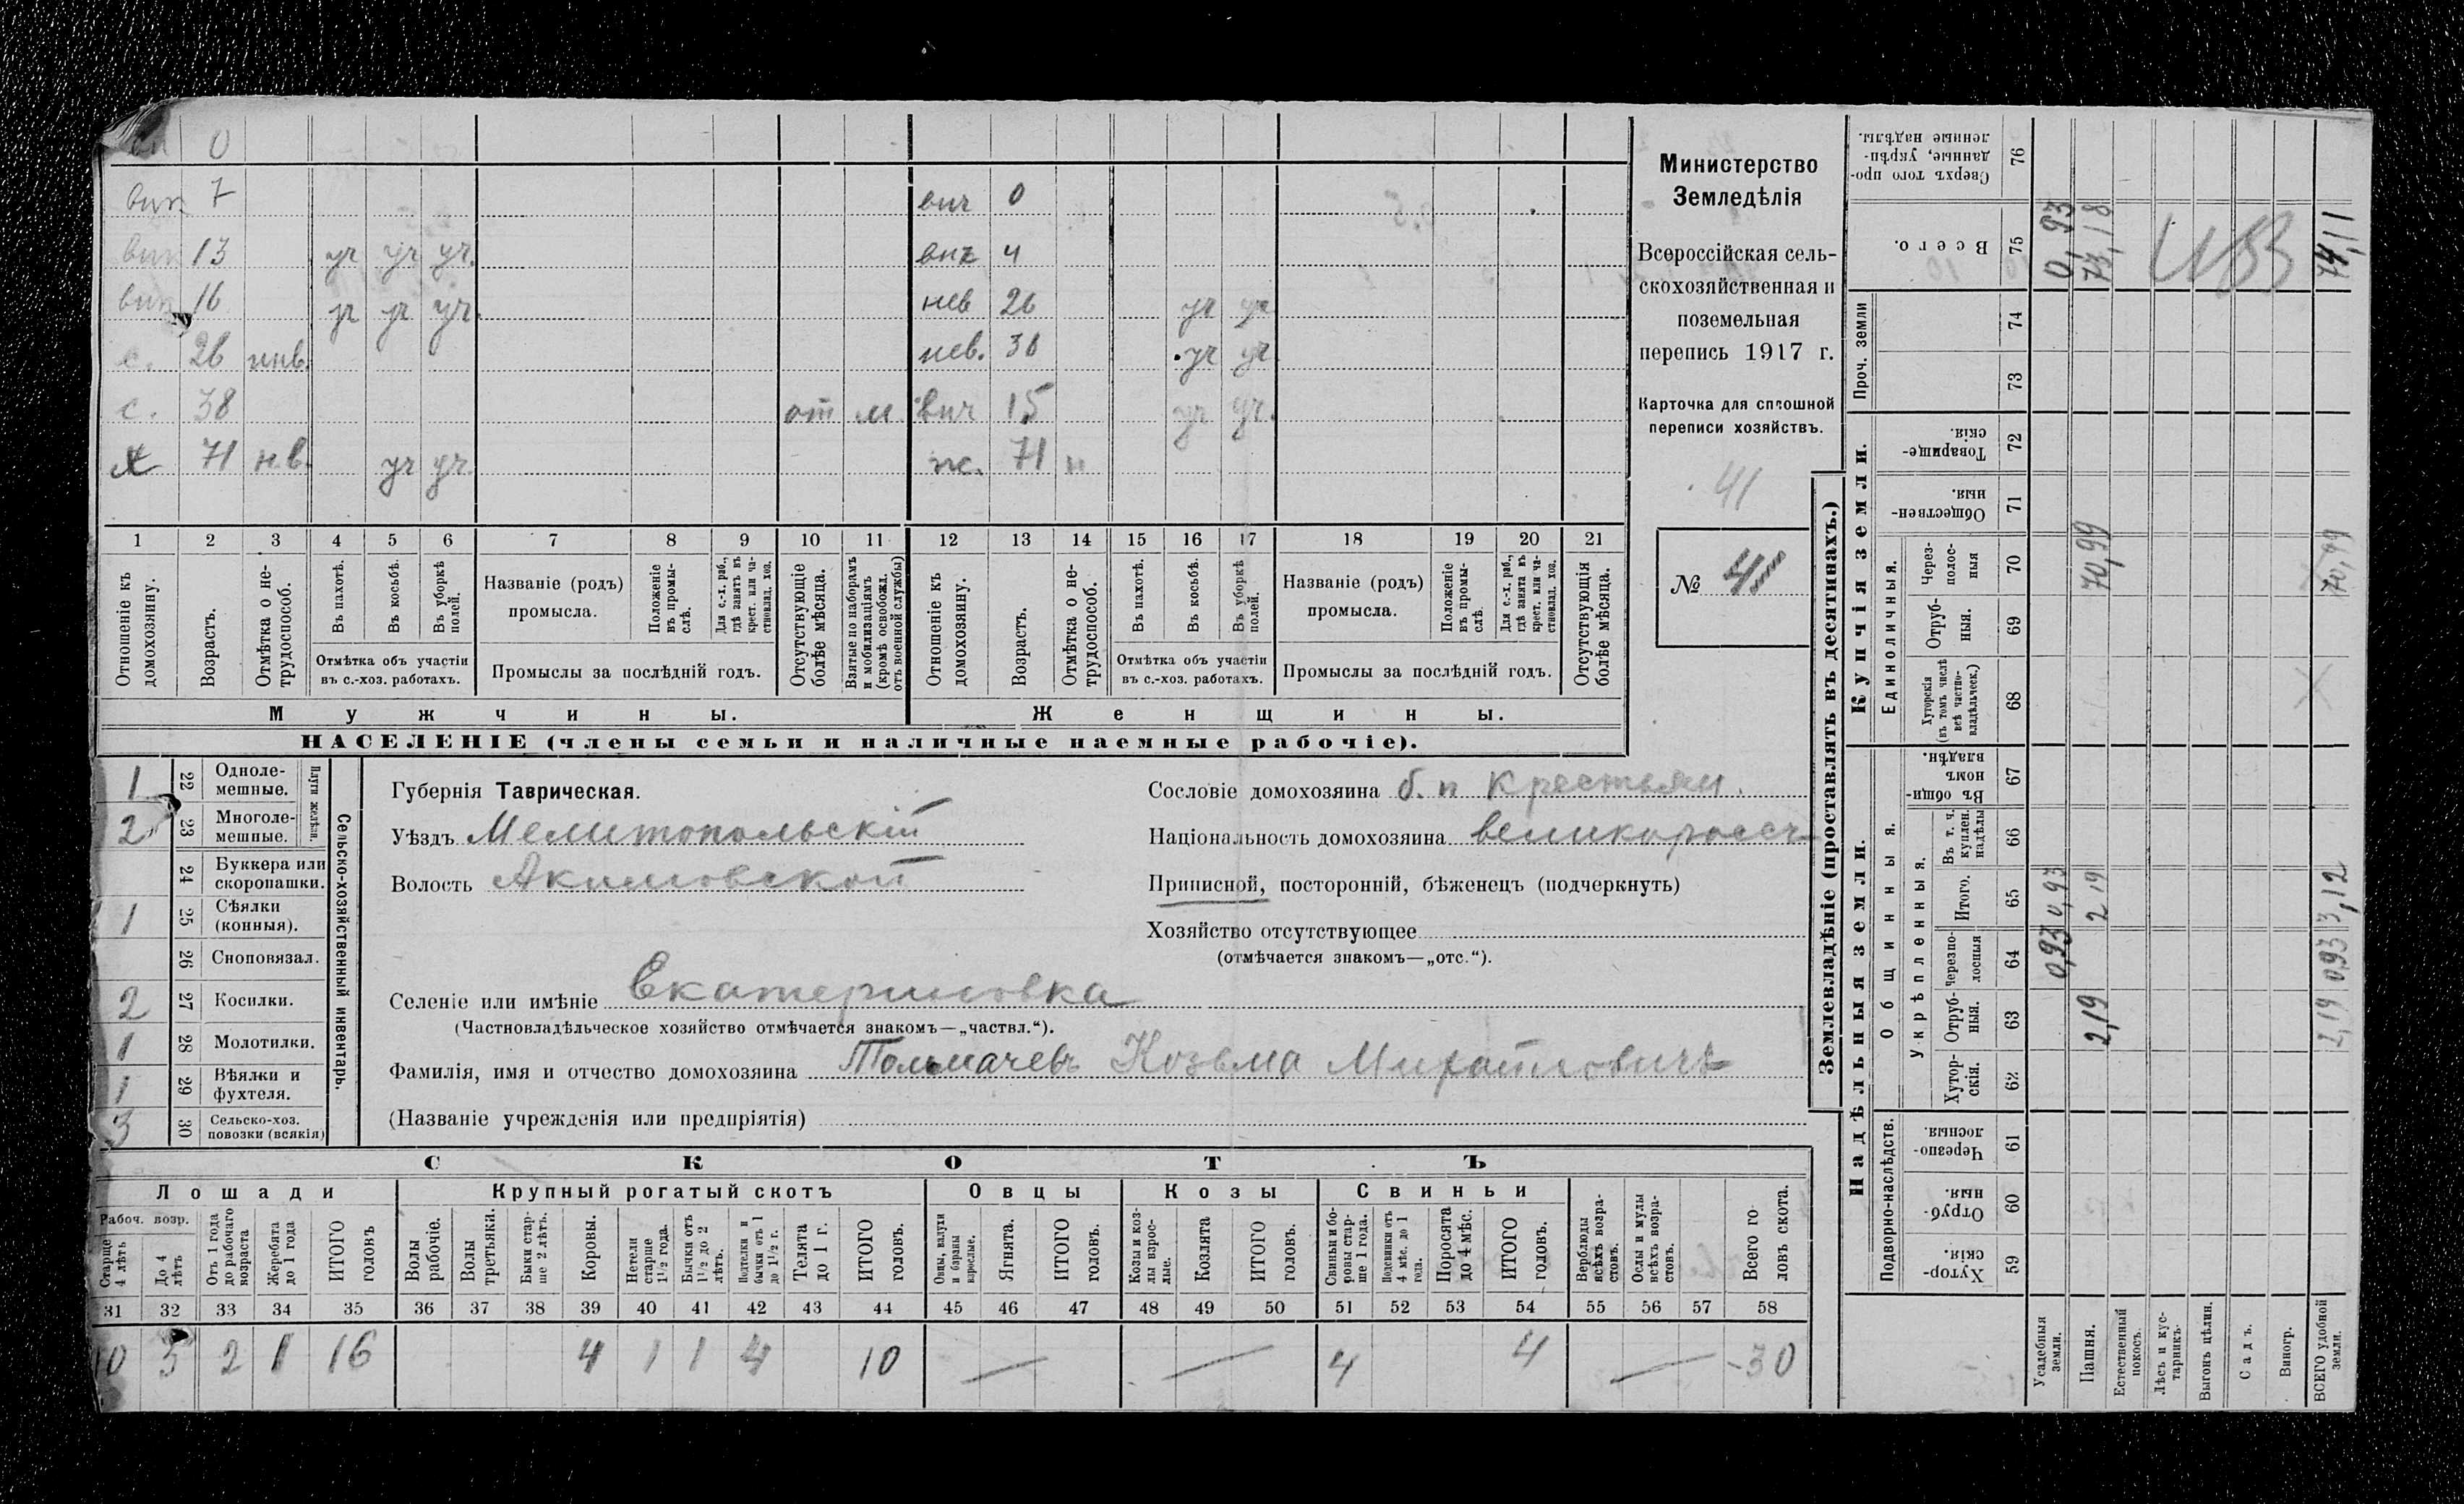 вн 0
вик 7 внч 0
вик 13 уч уч уч. внч 4
вик 16 уч уч уч. нев 26 уч уч
с. 26 инв. нев. 36 уч уч
с. 38 от м внч 15 уч уч.
х 71 н.в. уч уч. ж. 71 н
1 2 3 4 5 6 7 8 9 10 11 12 13 14 15 16 17 18 19 20 21
Отношеніе къ домохозяину.
Возрастъ.
Отмѣтка о не-трудоспособ.
Въ пахотѣ.
Въ косьбѣ.
Въ уборкѣ полей.
Отмѣтка объ участіи въ с.-хоз. работахъ.
Названіе (родъ) промысла.
Положеніе въ промы-слѣ.
Для с.-х. раб., гдѣ занятъ въ крест. или ча-стновлад. хоз.
Промыслы за послѣдній годъ.
Отсутствующіе болѣе мѣсяца.
Взятые по наборамъ и мобилизаціямъ (кромѣ освобожд. отъ военной службы)
Отношеніе къ домохозяину.
Возрастъ.
Отмѣтка о не-трудоспособ.
Въ пахотѣ.
Въ косьбѣ.
Въ уборкѣ полей.
Отмѣтка объ участіи въ с.-хоз. работахъ.
Названіе (родъ) промысла.
Положеніе въ промы-слѣ.
Для с.-х. раб., гдѣ занята въ крест. или ча-стновлад. хоз.
Промыслы за послѣдній годъ.
Отсутствующія болѣе мѣсяца.
Мужчины. Женщины.
НАСЕЛЕНІЕ (члены семьи и наличные наемные рабочіе).
Министерство
Земледѣлія
Всероссійская сель-
скохозяйственная и
поземельная
перепись 1917 г.
Карточка для сплошной
переписи хозяйствъ.
41
№ 41
Сельско-хозяйственный инвентарь.
Плуги желѣзн.
1 22 Одноле-мешные.
2 23 Многоле-мешные.
24 Буккера или скоропашки.
1 25 Сѣялки (конныя).
26 Сноповязал.
2 27 Косилки.
1 28 Молотилки.
1 29 Вѣялки и фухтеля.
3 30 Сельско-хоз. повозки (всякія)
Губернія Таврическая.
Уѣздъ Мелитопольскій
Волость Акимовской
Селеніе или имѣніе Екатериновка
(Частновладѣльческое хозяйство отмѣчается знакомъ—„частвл.“).
Фамилія, имя и отчество домохозяина Толмачевъ Козьма
(Названіе учрежденія или предпріятія)
Сословіе домохозяина б. п Крестьян.
Національность домохозяина великоросс
Приписной, посторонній, бѣженецъ (подчеркнуть)
Хозяйство отсутствующее
(отмѣчается знакомъ—„отс.“).
СКОТЪ
Лошади Крупный рогатый скотъ Овцы Козы Свиньи
Рабоч. возр.
Старше 4 лѣтъ
До 4 лѣтъ
Отъ 1 года до рабочаго возраста
Жеребята до 1 года
ИТОГО головъ
Волы рабочіе.
Волы третьяки.
Быки стар-ше 2 лѣтъ.
Коровы.
Нетели старше 1½ года.
Бычки отъ 1½ до 2 лѣтъ.
Подтелки и бычки отъ 1 до 1½ г.
Телята до 1 г.
ИТОГО головъ.
Овцы, валухи и бараны взрослые.
Ягнята.
ИТОГО головъ.
Козы и коз-лы взрос-лые.
Козлята
ИТОГО головъ.
Свиньи и бо-ровы стар-ше 1 года.
Подсвинки отъ 4 мѣс. до 1 года.
Поросята до 4 мѣс.
ИТОГО головъ.
Верблюды всѣхъ возра-стовъ.
Ослы и мулы всѣхъ возра-стовъ.
Всего го-ловъ скота.
31 32 33 34 35 36 37 38 39 40 41 42 43 44 45 46 47 48 49 50 51 52 53 54 55 56 57 58
10 3 2 1 16 4 1 1 4 10 — — 4 4 — 30
Землевладѣніе (проставлять въ десятинахъ.)
Надѣльныя земли. Купчія земли. Проч. земли
Подворно-наслѣдств. Общинныя. Укрѣпленныя. Единоличныя.
Хутор-скія. 59
Отруб-ныя. 60
Черезпо-лосныя. 61
Хутор-скія. 62
Отруб-ныя. 63
Черезпо-лосныя 64
Итого. 65
Въ т. ч. куплен. надѣлы 66
Въ общин-номъ владѣн. 67
Хуторскія (въ томъ числѣ всѣ частно-владѣльческ.) 68
Отруб-ныя. 69
Через-полос-ныя 70
Обществен-ныя. 71
Товарище-скія. 72
73
74
Всего. 75
Сверхъ того про-данные, укрѣп-ленные надѣлы. 76
Усадебныя земли. 0,93 0,93 0,93
Пашня. 2,19 2 19 70,99 73,18
Естественный покосъ.
Лѣсъ и кус-тарникъ.
Выгонъ цѣлин.
Садъ.
Виногр.
ВСЕГО удобной земли. 2,19 0,93 3,12 70,99 74,11